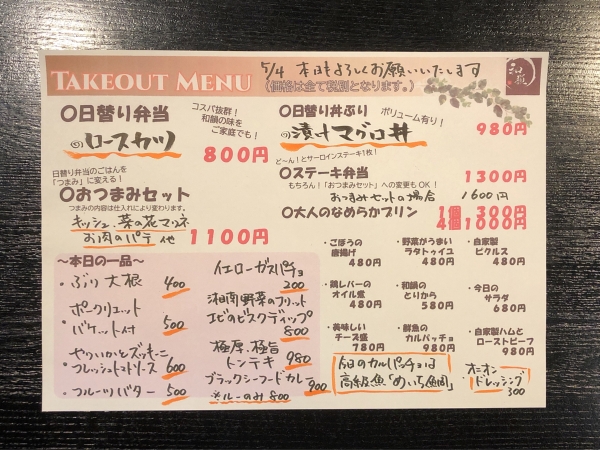 TAKEOUT MENU
5/4 本日もよろしくお願いいたします
(価格は全て税別となります。)
和韻
〇日替り弁当
コスパ抜群!
和韻の味を
ご家庭でも!
のロースカツ
800円
日替り弁当のごはんを
「つまみ」に変える!
〇おつまみセット
つまみの内容は仕入れにより変わります。
キッシュ、菜の花マリネ
お肉のパテ 他
1100円
〇日替り丼ぶり
ボリューム有り!
の漬けマグロ丼
980円
ど〜ん!とサーロインステーキ1枚!
〇ステーキ弁当
1300円
もちろん!「おつまみセット」への変更もOK!
おつまみセットの場合 1600円
〇大人のなめらかプリン
1個 300円
4個1000円
〜本日の一品〜
・ぶり大根 400
・ポークリエット
バケット付 500
・やりいかとズッキーニ
フレッシュトマトソース 600
・フルーツバター 500
イエローガスパチョ
200
湘南野菜のフリット
エビのビスクディップ
800
極厚、極旨
トンテキ 980
ブラックシーフードカレー
900
※ルーのみ 800
・ごぼうの
唐揚げ
480円
・野菜がうまい
ラタトゥイユ
480円
・自家製
ピクルス
480円
・鶏レバーの
オイル煮
480円
・和韻の
とりから
580円
・今日の
サラダ
680円
・美味しい
チーズ盛
780円
・鮮魚の
カルパッチョ
980円
・自家製ハムと
ローストビーフ
980円
本日のカルパッチョは
高級魚「めいち鯛」
・オニオン
ドレッシング
300